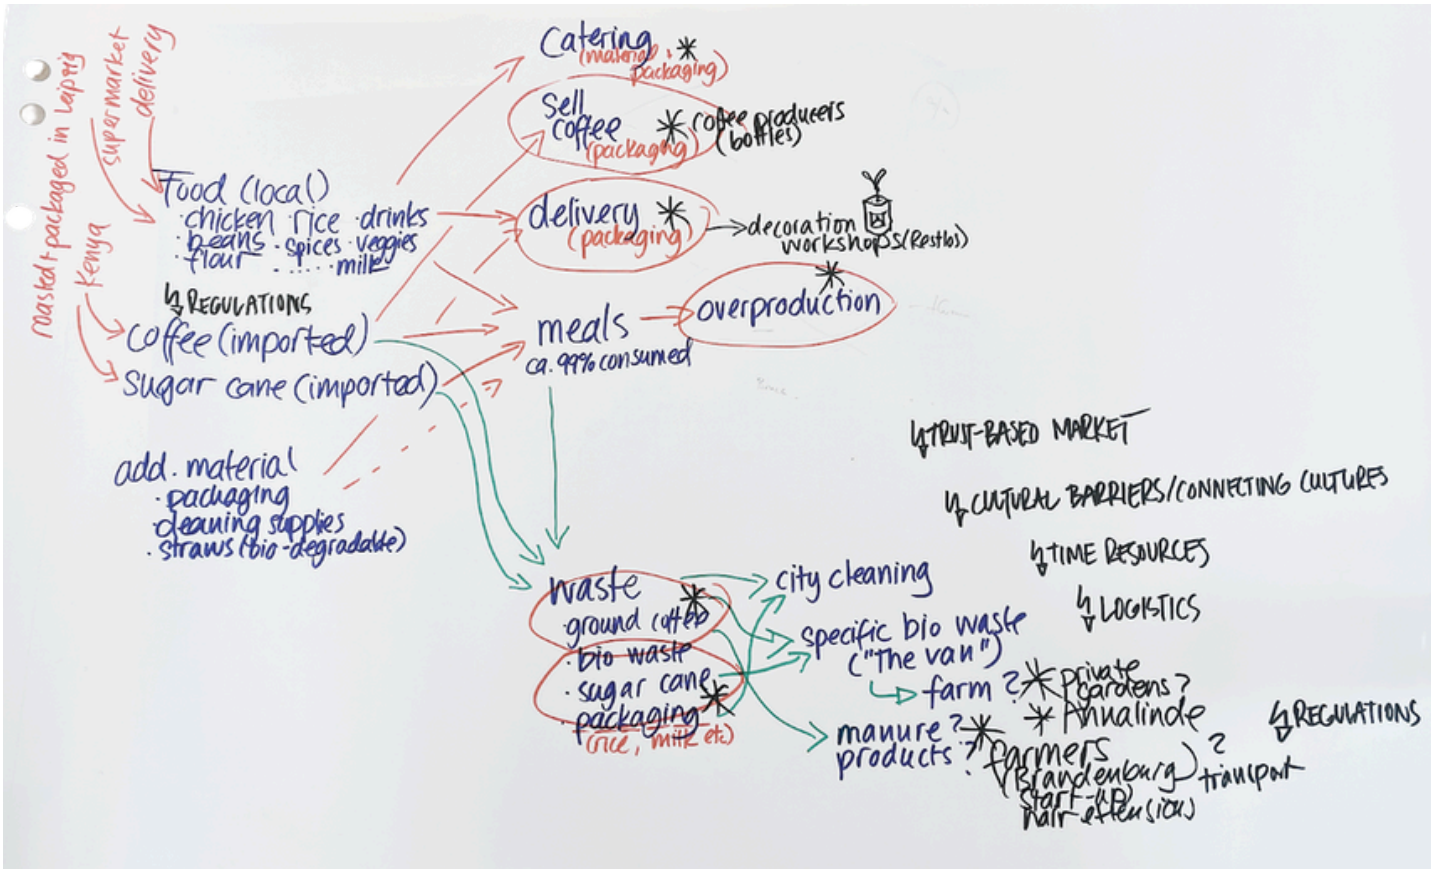 roasted + packaged in Leipzig
supermarket
delivery
Kenya
Food (local)
· chicken · rice · drinks
· beans · spices · veggies
· flour · ..... · milk
REGULATIONS
coffee (imported)
sugar cane (imported)
add. material
· packaging
· cleaning supplies
· straws (bio-degradable)
Catering
(material +
packaging)
Sell
coffee
(packaging)
coffee producers
(bottles)
delivery
(packaging)
decoration
workshops (Restlos)
meals
ca. 99% consumed
overproduction
waste
· ground coffee
· bio waste
· sugar cane
· packaging
(rice, milk etc)
city cleaning
specific bio waste
("The van")
farm ?
private
gardens ?
Annalinde
manure ?
products ?
farmers
(Brandenburg)
?
transport
(start-up)
hair extensions
TRUST-BASED MARKET
CULTURAL BARRIERS/CONNECTING CULTURES
TIME RESOURCES
LOGISTICS
REGULATIONS